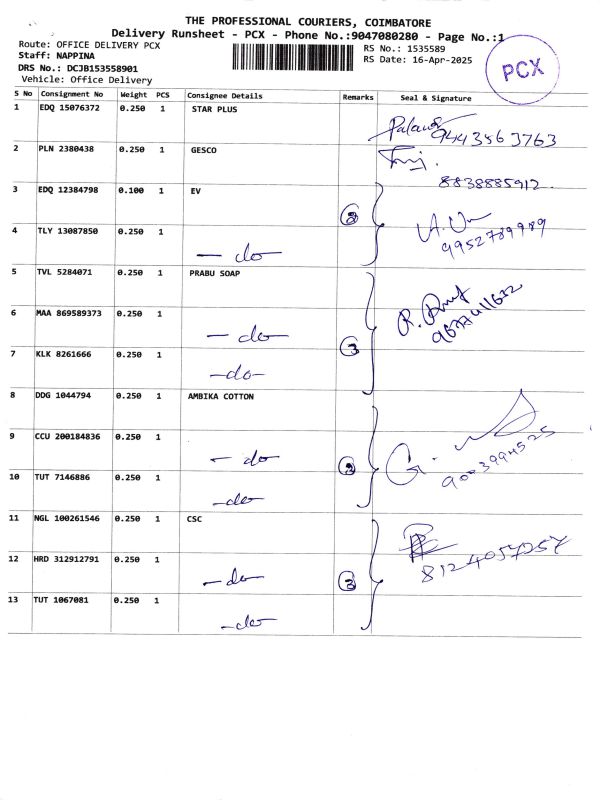 THE PROFESSIONAL COURIERS, COIMBATORE
Delivery Runsheet - PCX - Phone No.:9047080280 - Page No.:1
Route: OFFICE DELIVERY PCX
Staff: NAPPINA
DRS No.: DCJB153558901
Vehicle: Office Delivery
RS No.: 1535589
RS Date: 16-Apr-2025
PCX
S No Consignment No Weight PCS Consignee Details Remarks Seal & Signature
1 EDQ 15076372 0.250 1 STAR PLUS
9443563763
2 PLN 2380438 0.250 1 GESCO
8838885912
3 EDQ 12384798 0.100 1 EV
9952789989
4 TLY 13087850 0.250 1 - do
5 TVL 5284071 0.250 1 PRABU SOAP
6 MAA 869589373 0.250 1 - do
3
7 KLK 8261666 0.250 1 -do-
8 DDG 1044794 0.250 1 AMBIKA COTTON
9 CCU 200184836 0.250 1 - do
10 TUT 7146886 0.250 1 -do
11 NGL 100261546 0.250 1 CSC
8124057257
12 HRD 312912791 0.250 1 - do
3
13 TUT 1067081 0.250 1 -do